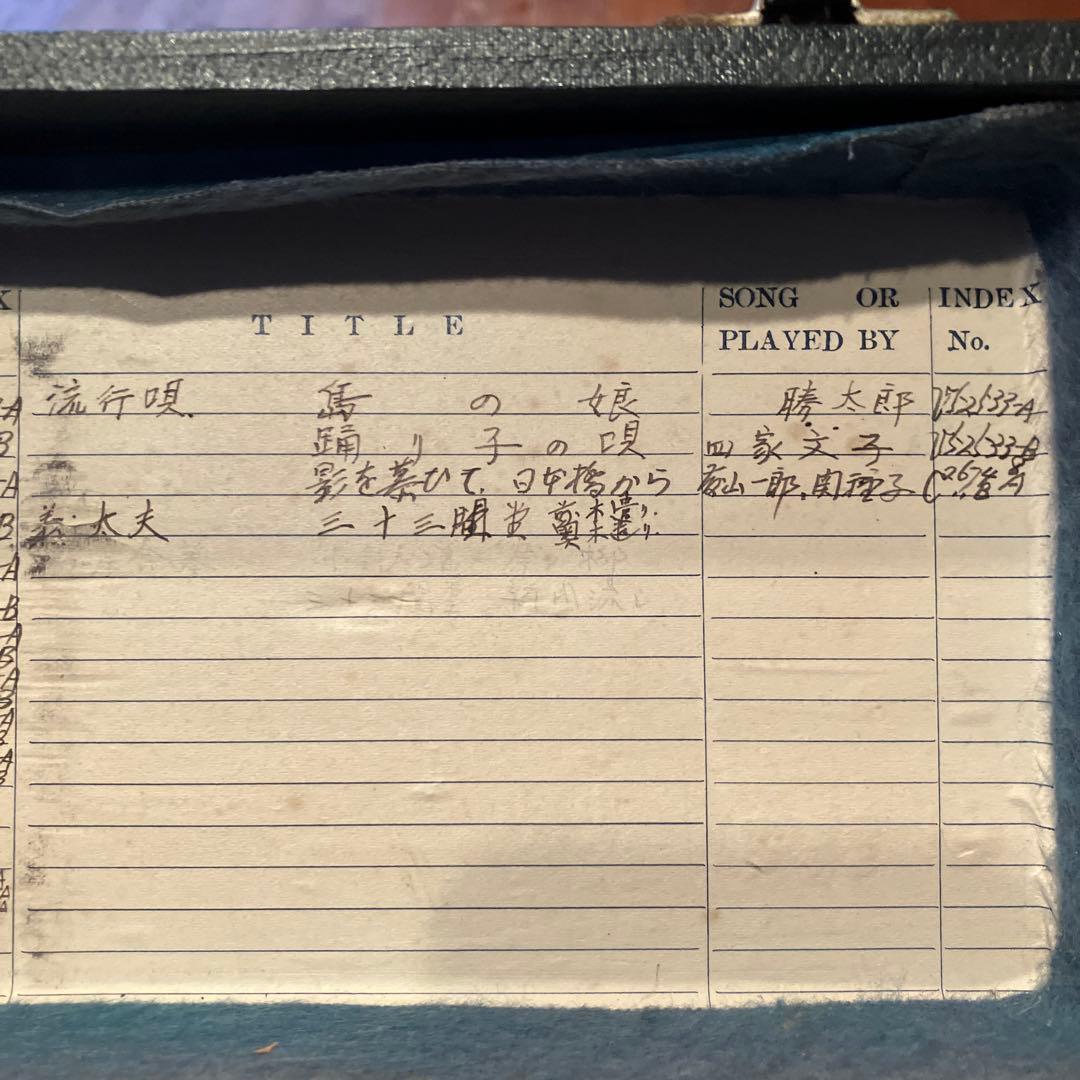 TITLE
SONG OR PLAYED BY
INDEX No.
流行唄. 島の娘 勝太郎 52533-A
踊り子の唄 四家文子 52533-B
影を慕ひて. 日本橋から 山一郎.関種子
太夫 三十三間堂 木遣り.
A
B
A
B
A
B
A
B
A
B
A
B